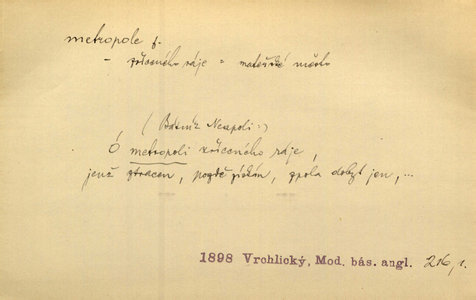 metropole f.
- ztraceného ráje = mateřské město
(Básník Neapoli:)
Ó metropoli ztraceného ráje,
jenž ztracen, pozdě získán, zpola dobyt jen, ...
1898 Vrchlický, Mod. bás. angl. 216,1.